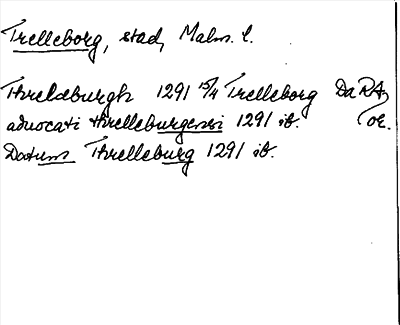 Trelleborg, stad, Malm. l.
Threlæburgh 1291 15/4 Trelleborg DaRA,
advocati threlleburgensi 1291 ib. or.
Datum Threlleburg 1291 ib.